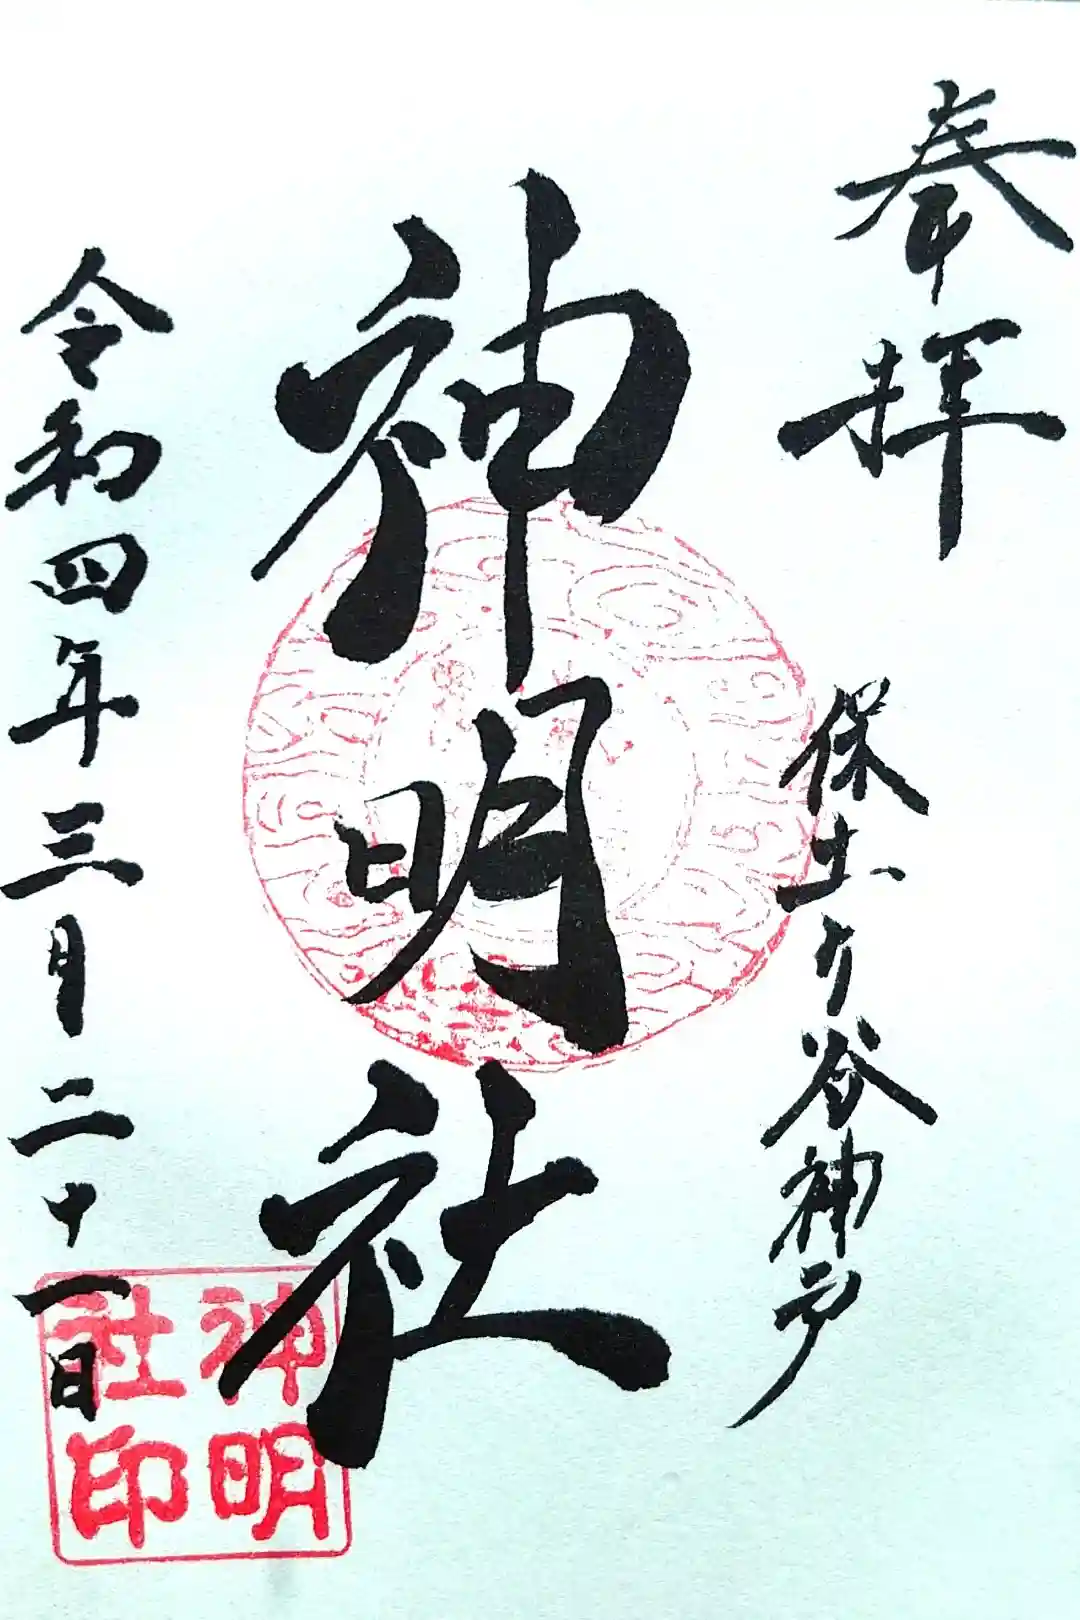 奉拝
保土ヶ谷神戸
神明社
令和四年三月二十一日
神明
社印